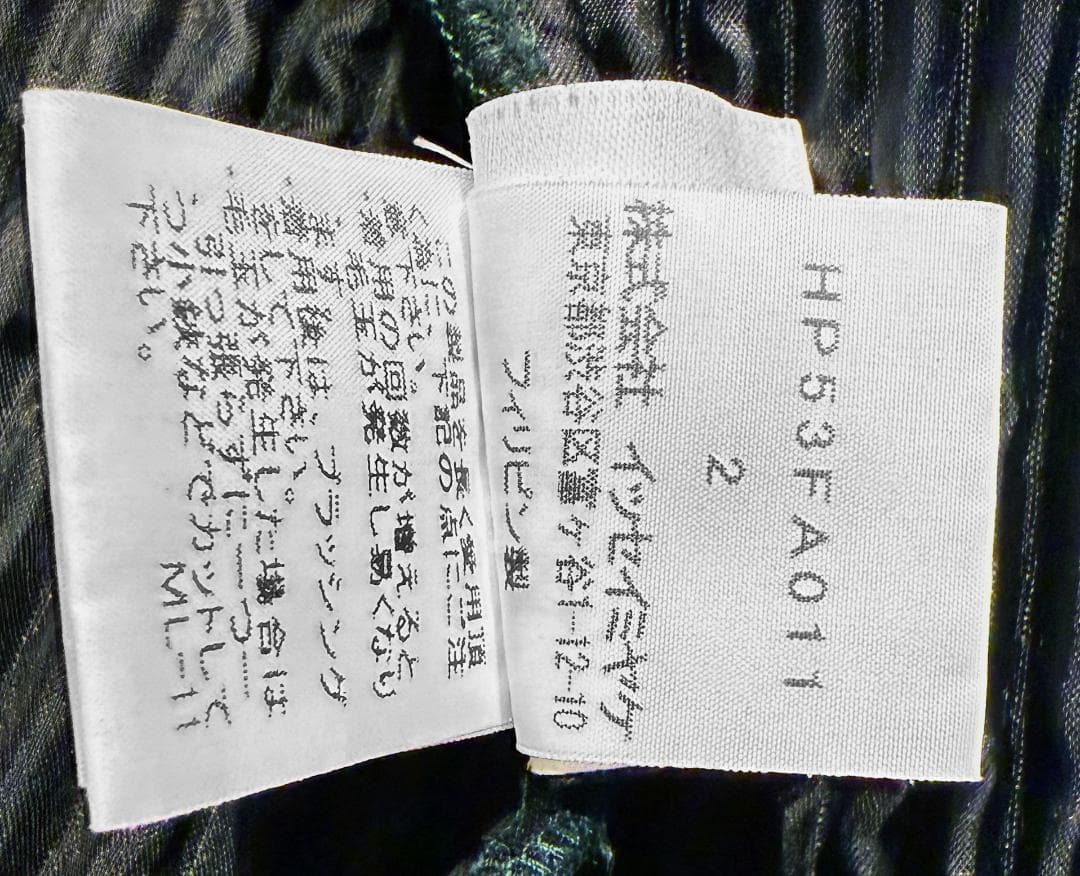 HP53FA011
2
株式会社 イッセイミヤケ
東京都渋谷区富ヶ谷1-12-10
フィリピン製
この製品を長く愛用頂
く為に、下記の点にご注
意下さい。
・着用の回数が増えると
毛玉が発生し易くなり
ます。
・着用後は、ブラッシング
をして下さい。
・毛玉が発生した場合は
引っ張らずに一つ一
つ小鋏などでカットして
下さい。
ML-11